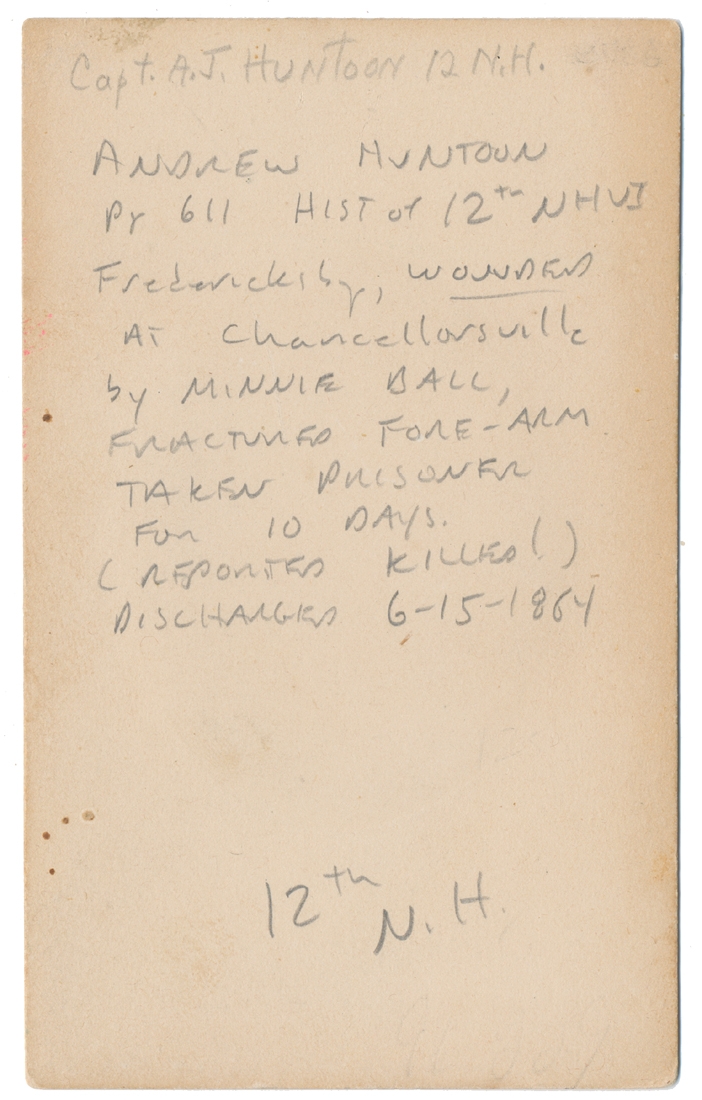 Capt. A.J. HUNTOON 12 N.H.
ANDREW HUNTOON
Pg 611 HIST of 12th NHVI
Fredericksbg, WOUNDED
AT Chancellorsville
by MINNIE BALL,
FRACTURED FORE-ARM
TAKEN PRISONER
FOR 10 DAYS.
(REPORTED KILLED!)
DISCHARGED 6-15-1864
12th
N.H.